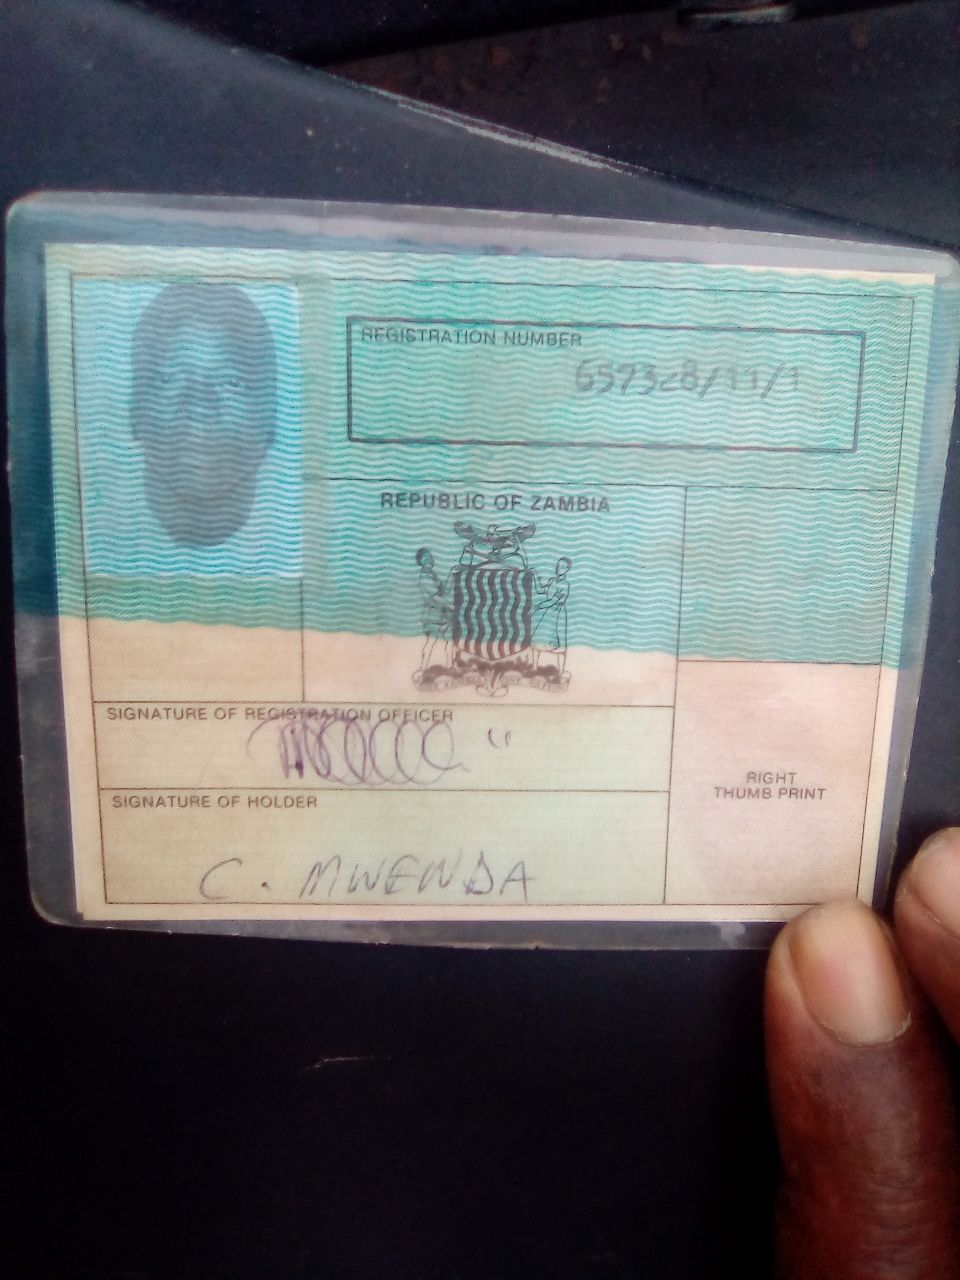 REGISTRATION NUMBER
657328/11/1
REPUBLIC OF ZAMBIA
ONE ZAMBIA ONE NATION
SIGNATURE OF REGISTRATION OFFICER
SIGNATURE OF HOLDER
C. MWENDA
RIGHT
THUMB PRINT